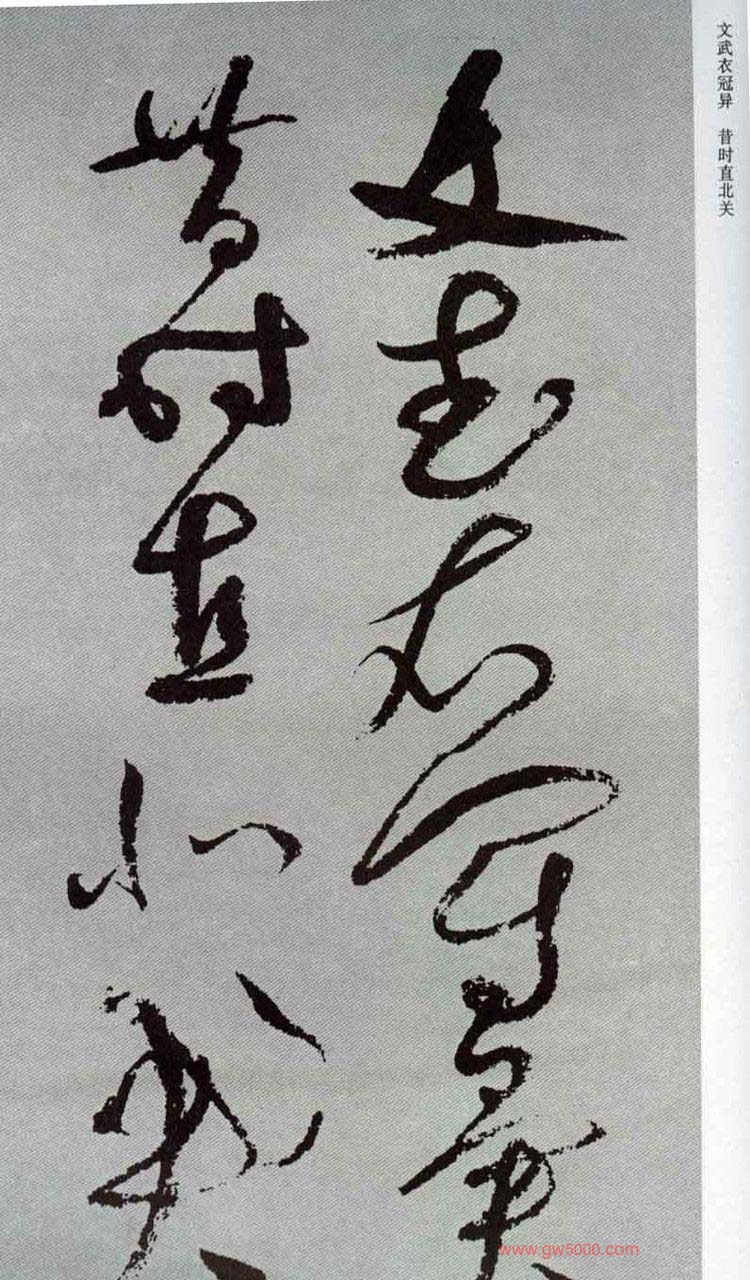 文武衣冠异　昔时直北关
文武衣冠異
昔時直北關
www.gw5000.com